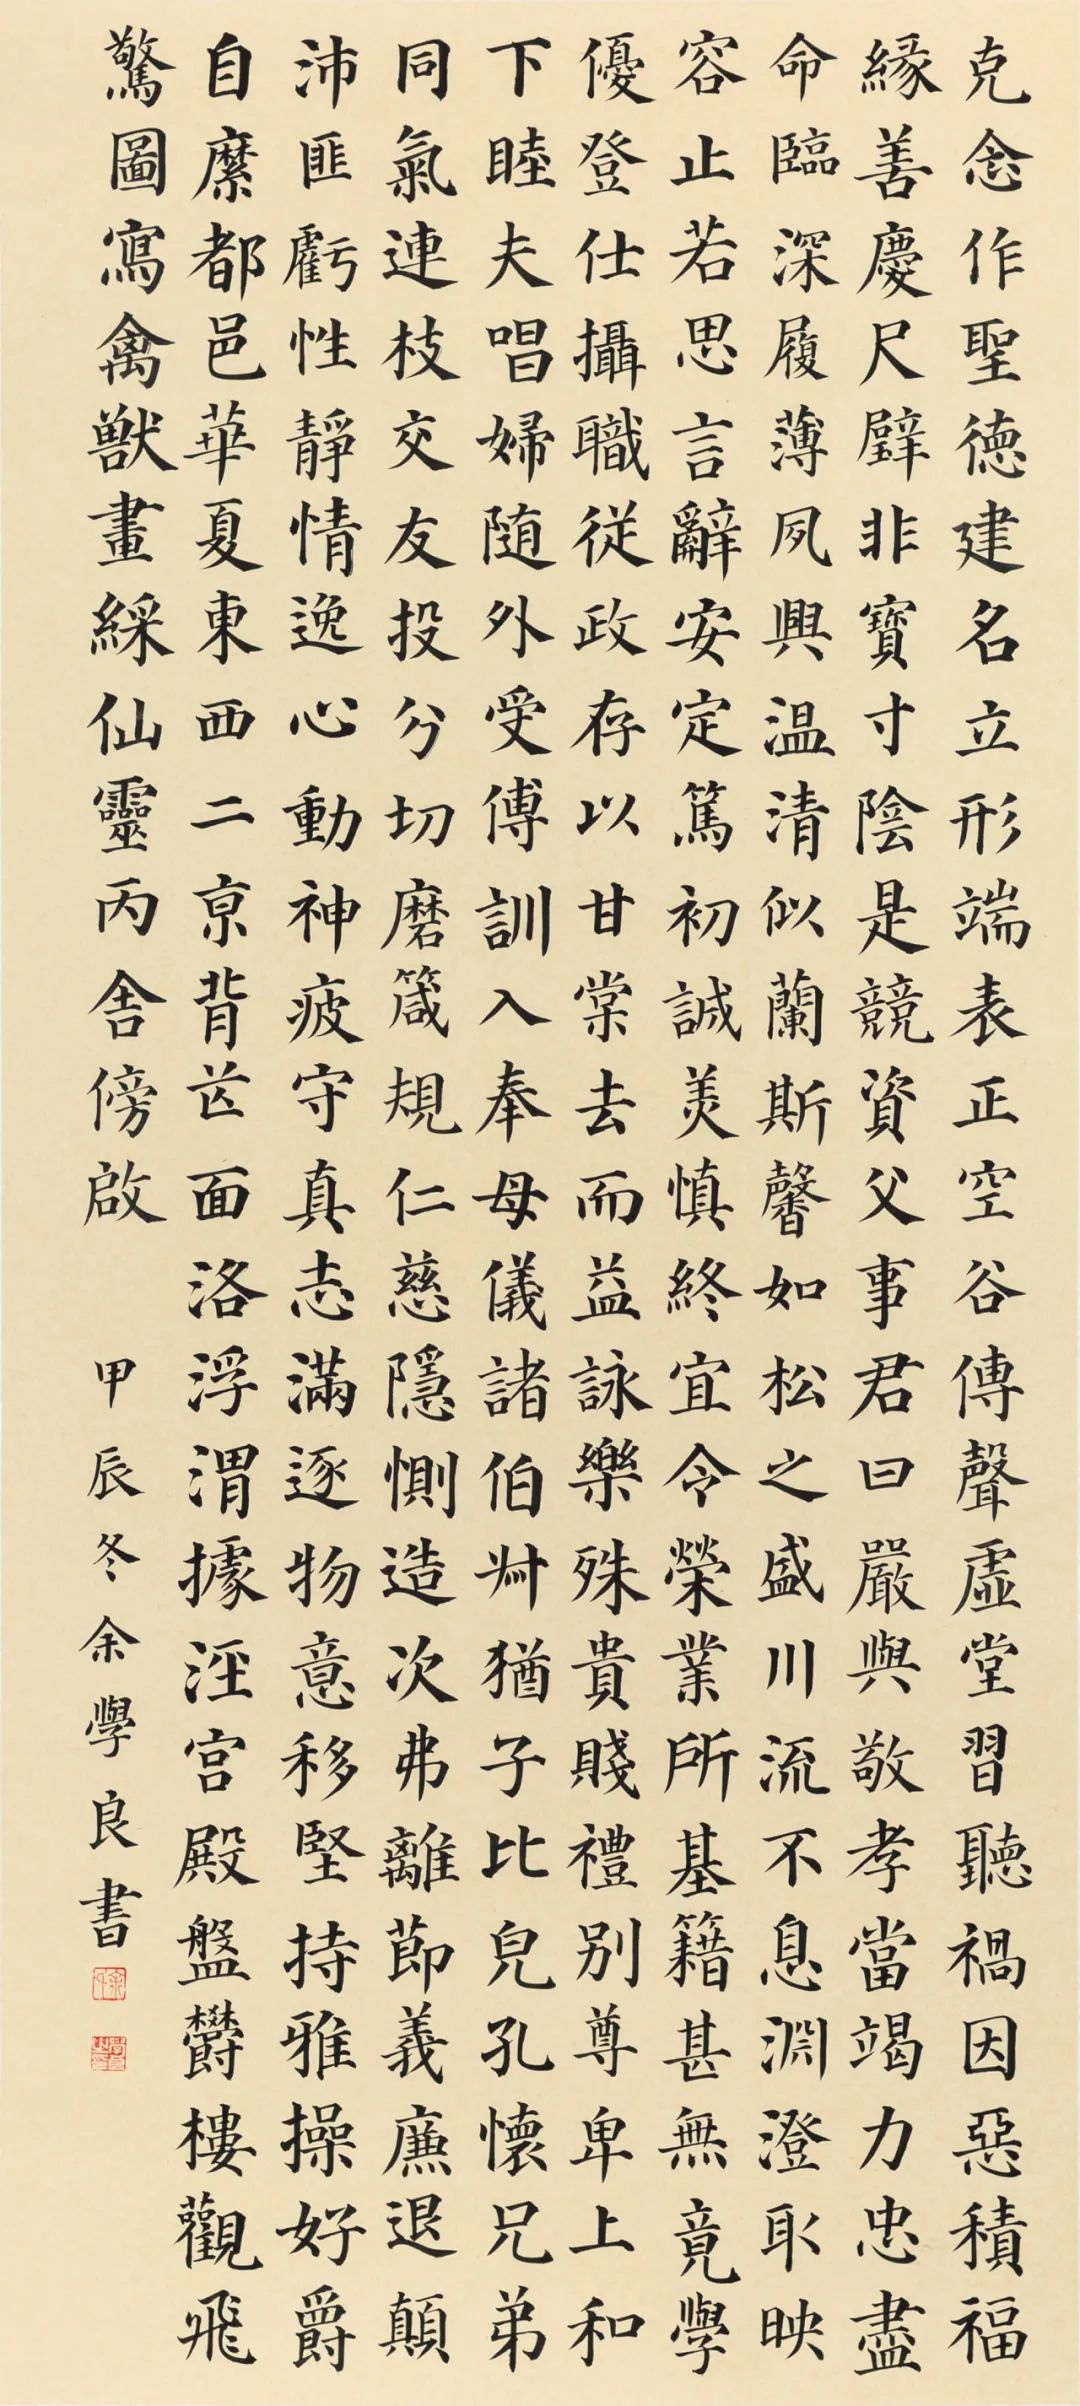 克念作聖德建名立形端表正空谷傳聲虛堂習聽禍因惡積福
緣善慶尺璧非寶寸陰是競資父事君曰嚴與敬孝當竭力忠盡
命臨深履薄夙興温清似蘭斯馨如松之盛川流不息淵澄取映
容止若思言辭安定篤初誠美慎終宜令榮業所基籍甚無竟學
優登仕攝職從政存以甘棠去而益詠樂殊貴賤禮別尊卑上和
下睦夫唱婦隨外受傅訓入奉母儀諸伯叔猶子比兒孔懷兄弟
同氣連枝交友投分切磨箴規仁慈隱惻造次弗離節義廉退顛
沛匪虧性靜情逸心動神疲守真志滿逐物意移堅持雅操好爵
自縻都邑華夏東西二京背芒面洛浮渭據涇宮殿盤鬱樓觀飛
驚圖寫禽獸畫綵仙靈丙舍傍啟
甲辰冬余學良書